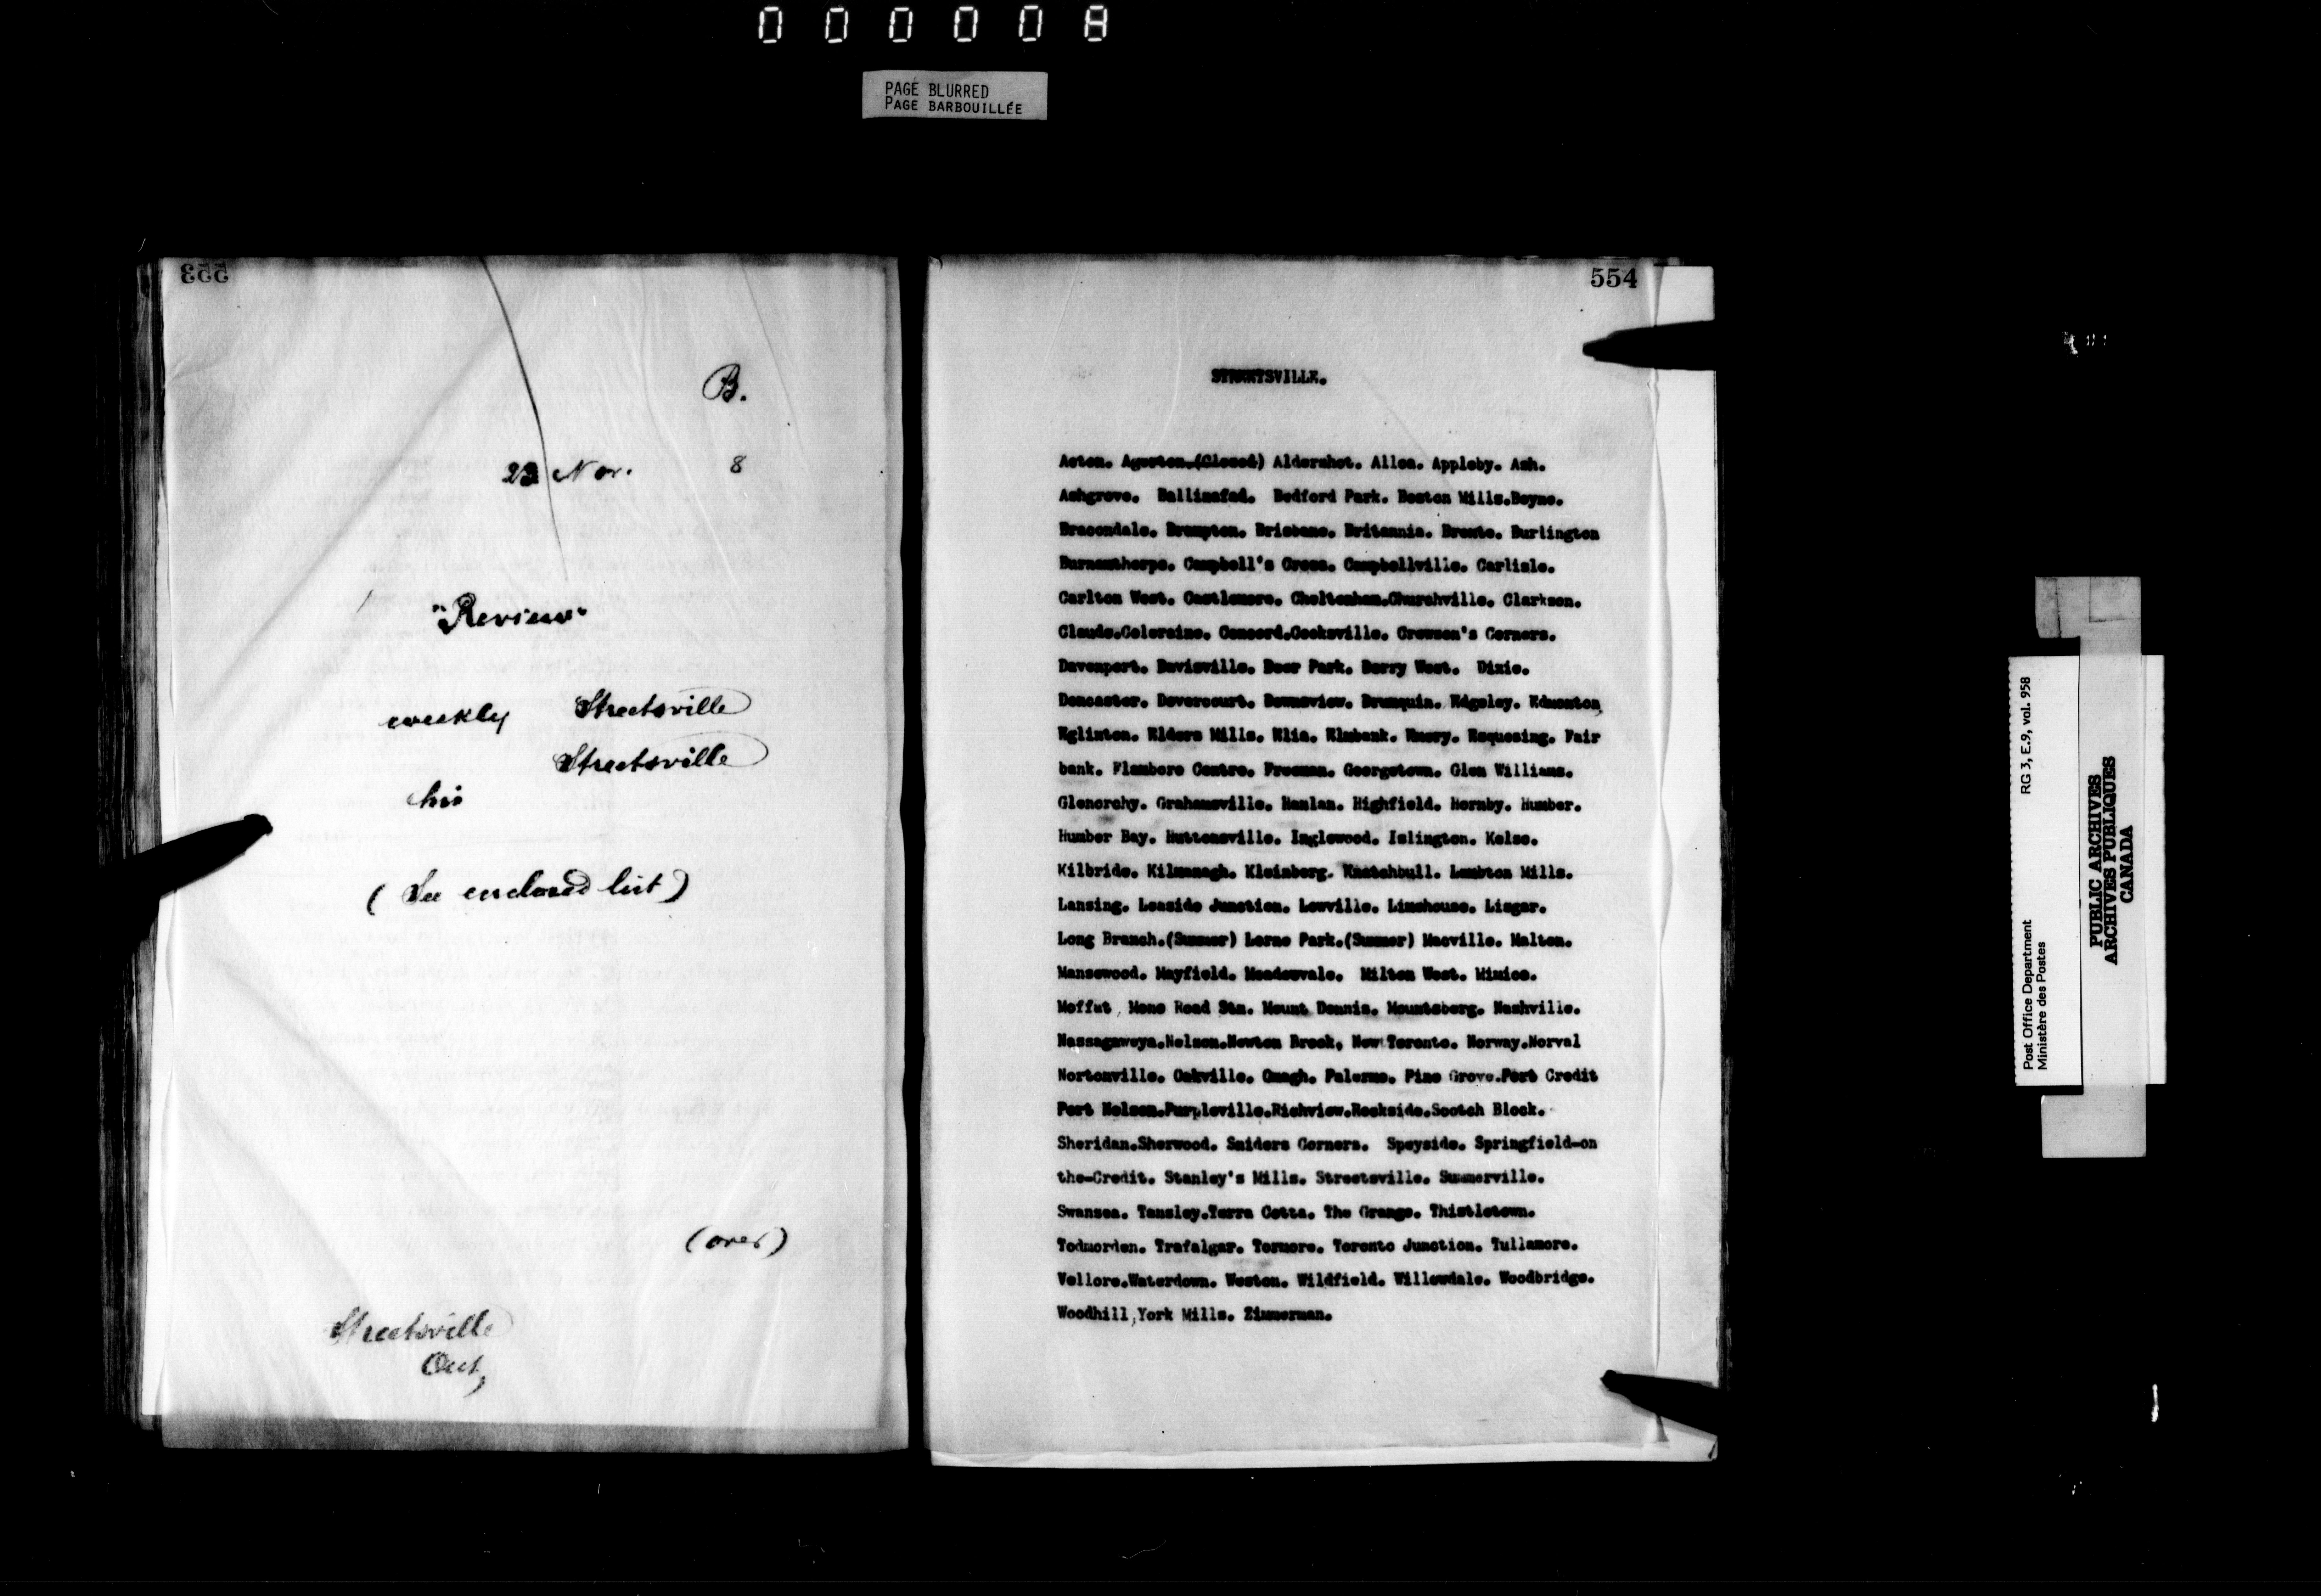 000008
PAGE BLURRED
PAGE BARBOUILLÉE
553
B.
23 Nov. 8
"Review"
weekly Streetsville
Streetsville
his
(See enclosed list)
(over)
Streetsville
Ont,
554
STREETSVILLE.
Acton. Agerton.(Closed) Aldershot. Alloa. Appleby. Ash.
Ashgrove. Ballinafad. Bedford Park. Boston Mills.Boyne.
Bracondale. Brampton. Brisbane. Britannia. Bronte. Burlington
Burnamthorpe. Campbell's Cross. Campbellville. Carlisle.
Carlton West. Castlemore. Cheltenham.Churchville. Clarkson.
Claude.Coleraine. Concord.Cooksville. Crewson's Corners.
Davenport. Davisville. Deer Park. Derry West. Dixie.
Doncaster. Dovercourt. Downsview. Drumquin. Edgeley. Edmonton,
Eglinton. Elders Mills. Elia. Elmbank. Emery. Esquesing. Fair
bank. Flamboro Centre. Freeman. Georgetown. Glen Williams.
Glenorchy. Grahamsville. Hanlan. Highfield. Hornby. Humber.
Humber Bay. Huttonsville. Inglewood. Islington. Kelso.
Kilbride. Kilmanagh. Kleinberg. Knatchbull. Lambton Mills.
Lansing. Leaside Junction. Lowville. Limehouse. Lisgar.
Long Branch.(Summer) Lorne Park.(Summer) Macville. Malton.
Mansewood. Mayfield. Meadowvale. Milton West. Mimico.
Moffat, Mono Road Stn. Mount Dennis. Mountsberg. Nashville.
Nassagaweya.Nelson.Newton Brook, New Toronto. Norway.Norval
Nortonville. Oakville. Omagh. Palermo. Pine Grove.Port Credit
Port Nelson.Purpleville.Richview.Rockside.Scotch Block.
Sheridan.Sherwood. Sniders Corners. Speyside. Springfield-on
the-Credit. Stanley's Mills. Streetsville. Summerville.
Swansea. Tansley.Terra Cotta. The Grange. Thistletown.
Todmorden. Trafalgar. Tormore. Toronto Junction. Tullamore.
Vellore.Waterdown. Weston. Wildfield. Willowdale. Woodbridge.
Woodhill,York Mills. Zimmerman.
RG 3, E.9, vol. 958
Post Office Department
Ministère des Postes
PUBLIC ARCHIVES
ARCHIVES PUBLIQUES
CANADA